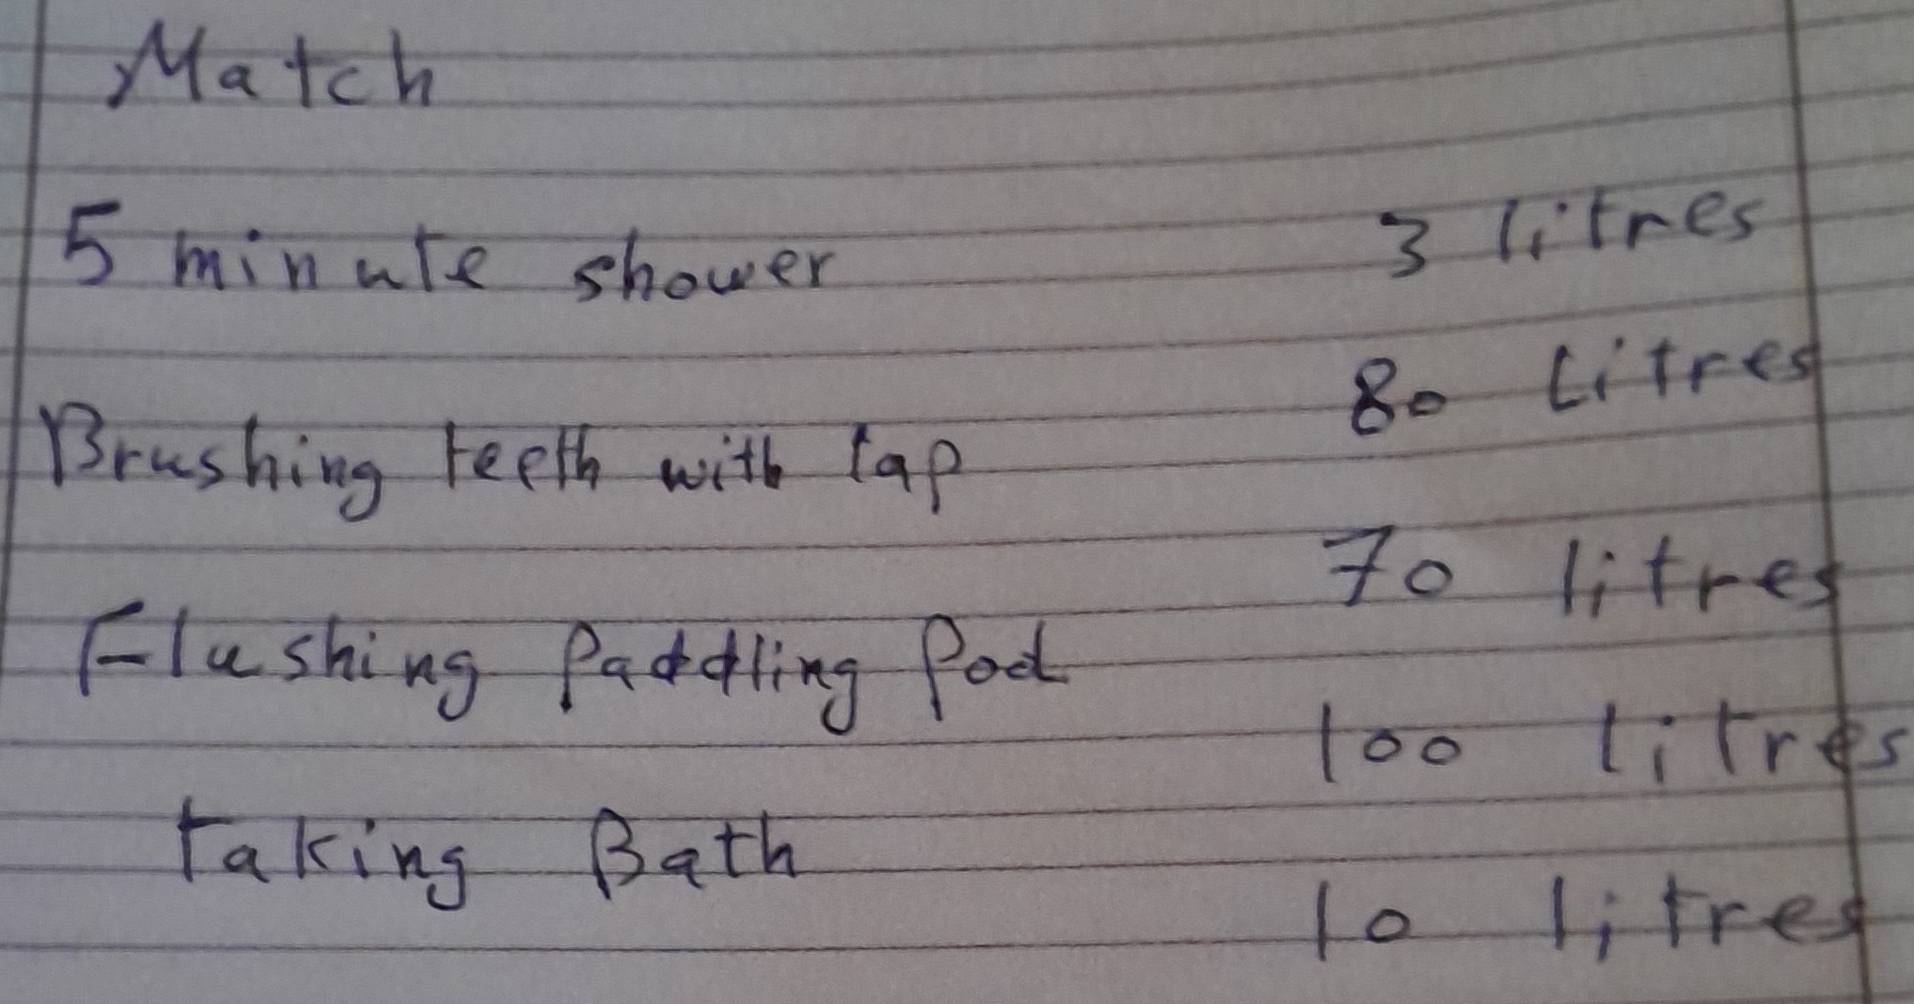 Match
5 minute shower
3 litres
80 Litres
Brushing teeth with tap
70 litres
Flushing Paddling Pool
100 litres
taking Bath
10 litres